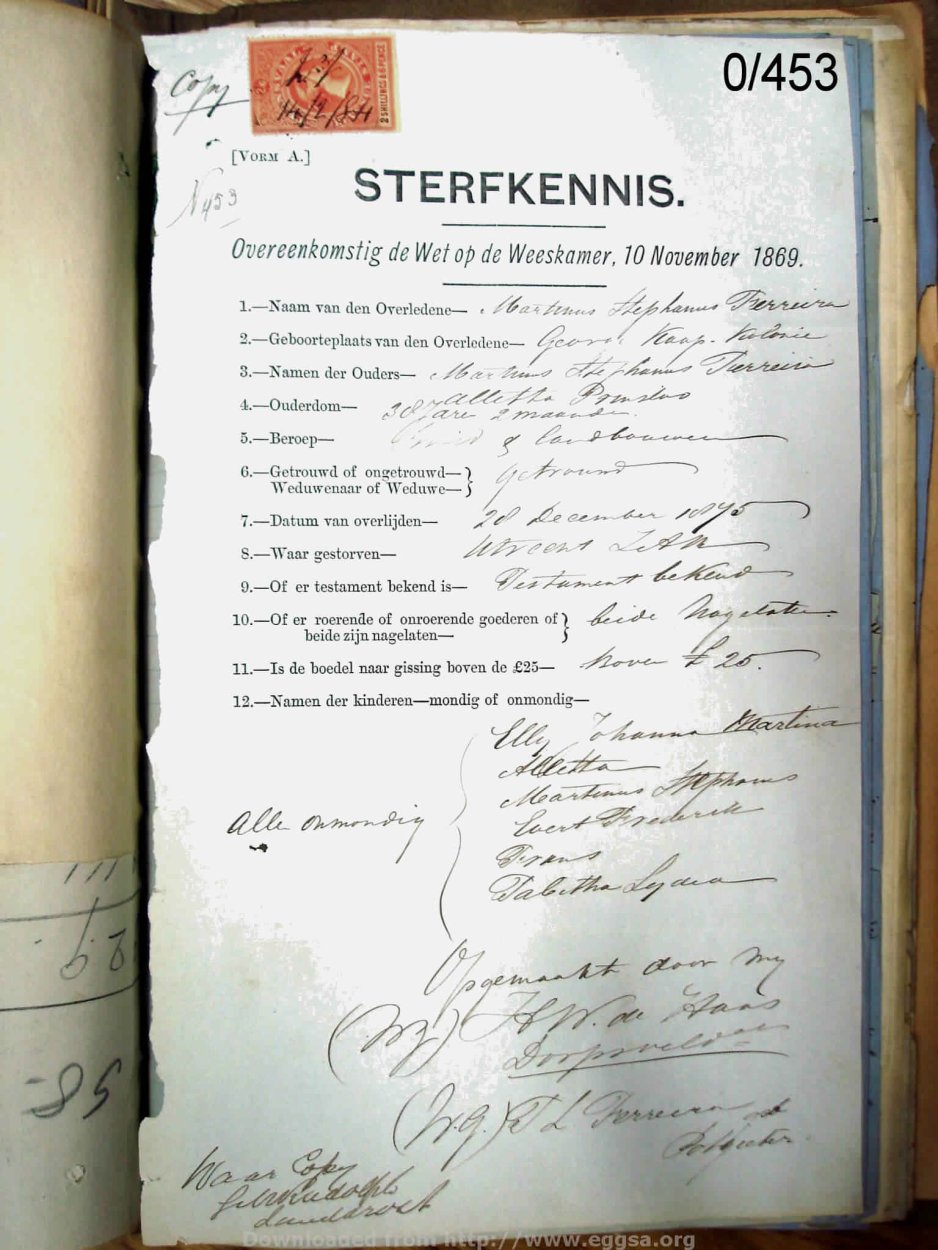 0/453
Copy
14/2/84
2 SHILLINGS & 6 PENCE
[VORM A.]
N 453
STERFKENNIS.
Overeenkomstig de Wet op de Weeskamer, 10 November 1869.
1.—Naam van den Overledene— Martinus Stephanus Ferreira
2.—Geboorteplaats van den Overledene— George Kaap-Kolonie
3.—Namen der Ouders— Martinus Stephanus Ferreira
Alletta
4.—Ouderdom— 38 Jare 2 maanden.
5.—Beroep— & landbouwer
6.—Getrouwd of ongetrouwd— } getrouwd
Weduwenaar of Weduwe— }
7.—Datum van overlijden— 28 December 1875
8.—Waar gestorven— Utrecht ZAR
9.—Of er testament bekend is— Testament bekend
10.—Of er roerende of onroerende goederen of } beide Nagelaten.
beide zijn nagelaten— }
11.—Is de boedel naar gissing boven de £25— boven £25.
12.—Namen der kinderen—mondig of onmondig—
Elly Johanna Martina
Alletta
Martinus Stephanus
Evert Frederik
Alle onmondig
Frans
Tabitha Lydia
Opgemaakt door My
(wg) H W. de Haas
(W.g.) T L Ferreira
Potgieter
Waar Copy
Landdrost
Downloaded from http://www.eggsa.org